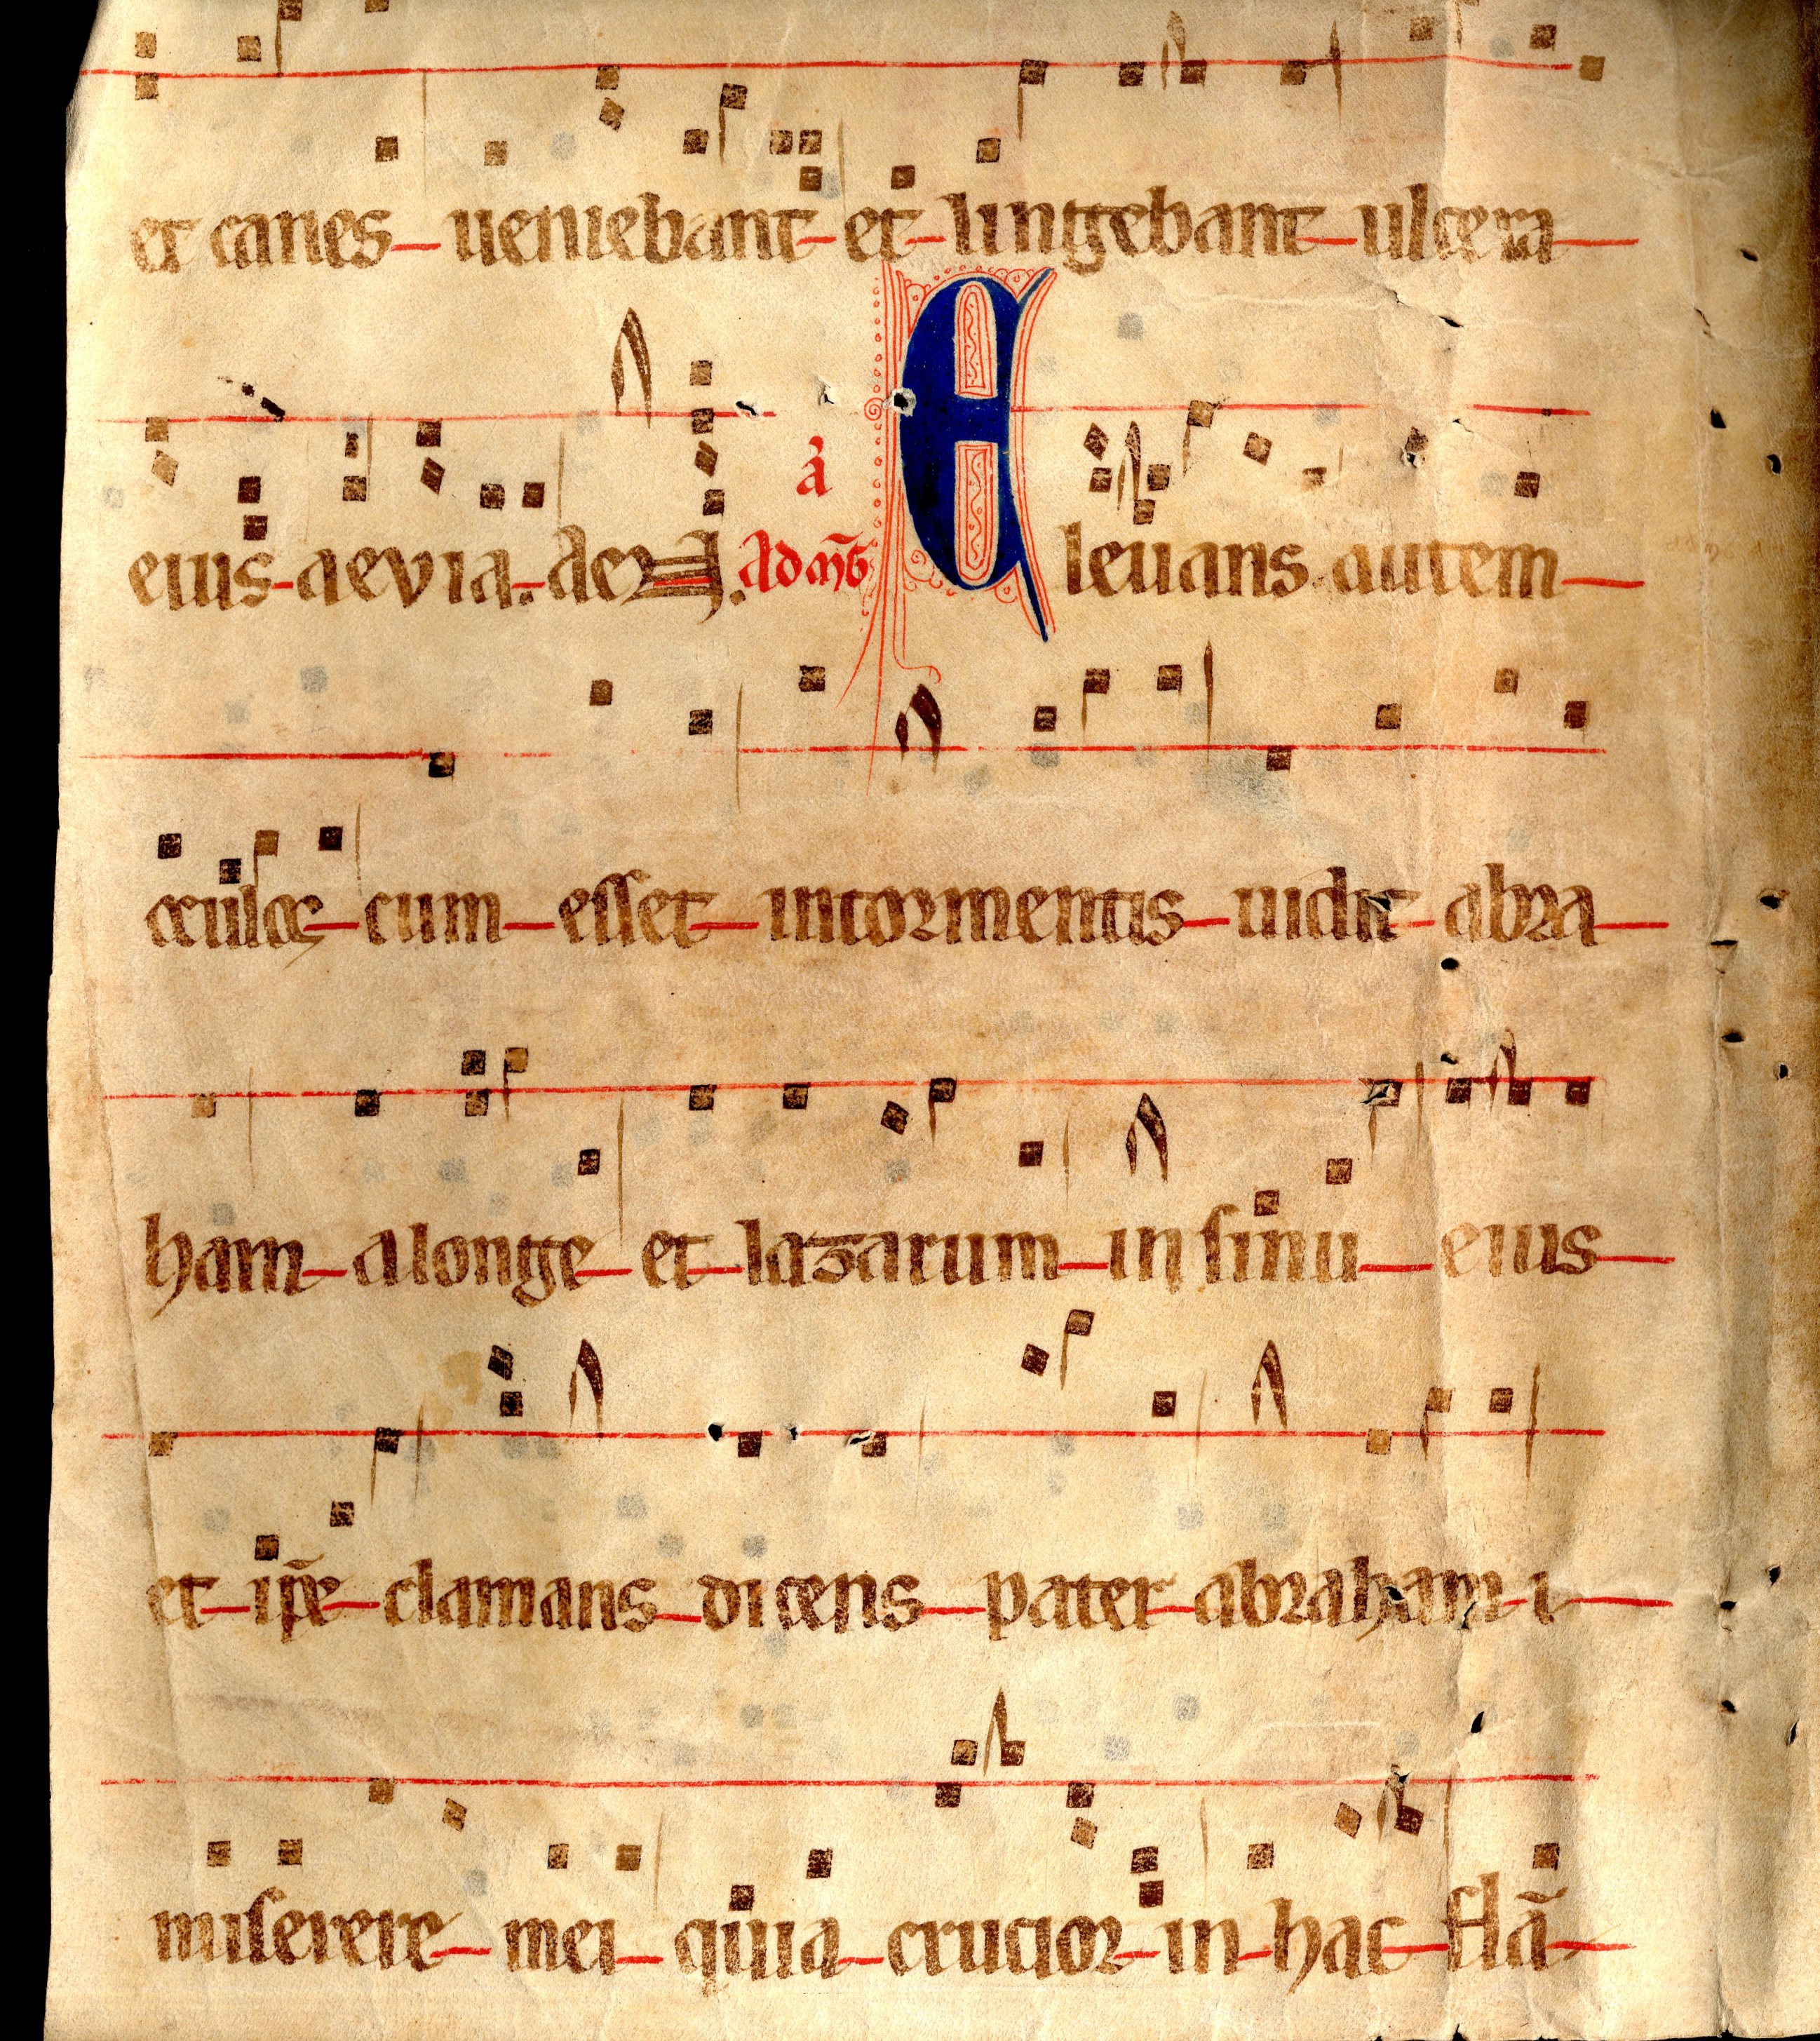 et canes ueniebant et lingebant ulcera
eius aevia. Ad mg̃ a᷒ Eleuans autem
oculos cum esset intormentis uidit abra
ham alonge et lazarum in sinu eius
et ip̃e clamans dicens pater abraham i
miserere mei quia crucior in hac flã